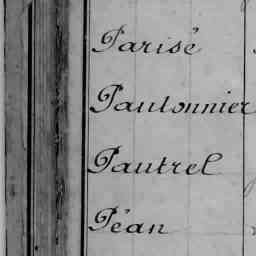 Parisé
Paulonnier
Pautrel
Péan